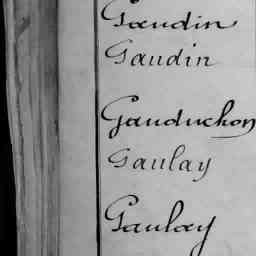 Gaudin
Gaudin
Gauduchon
Gaulay
Gaulay